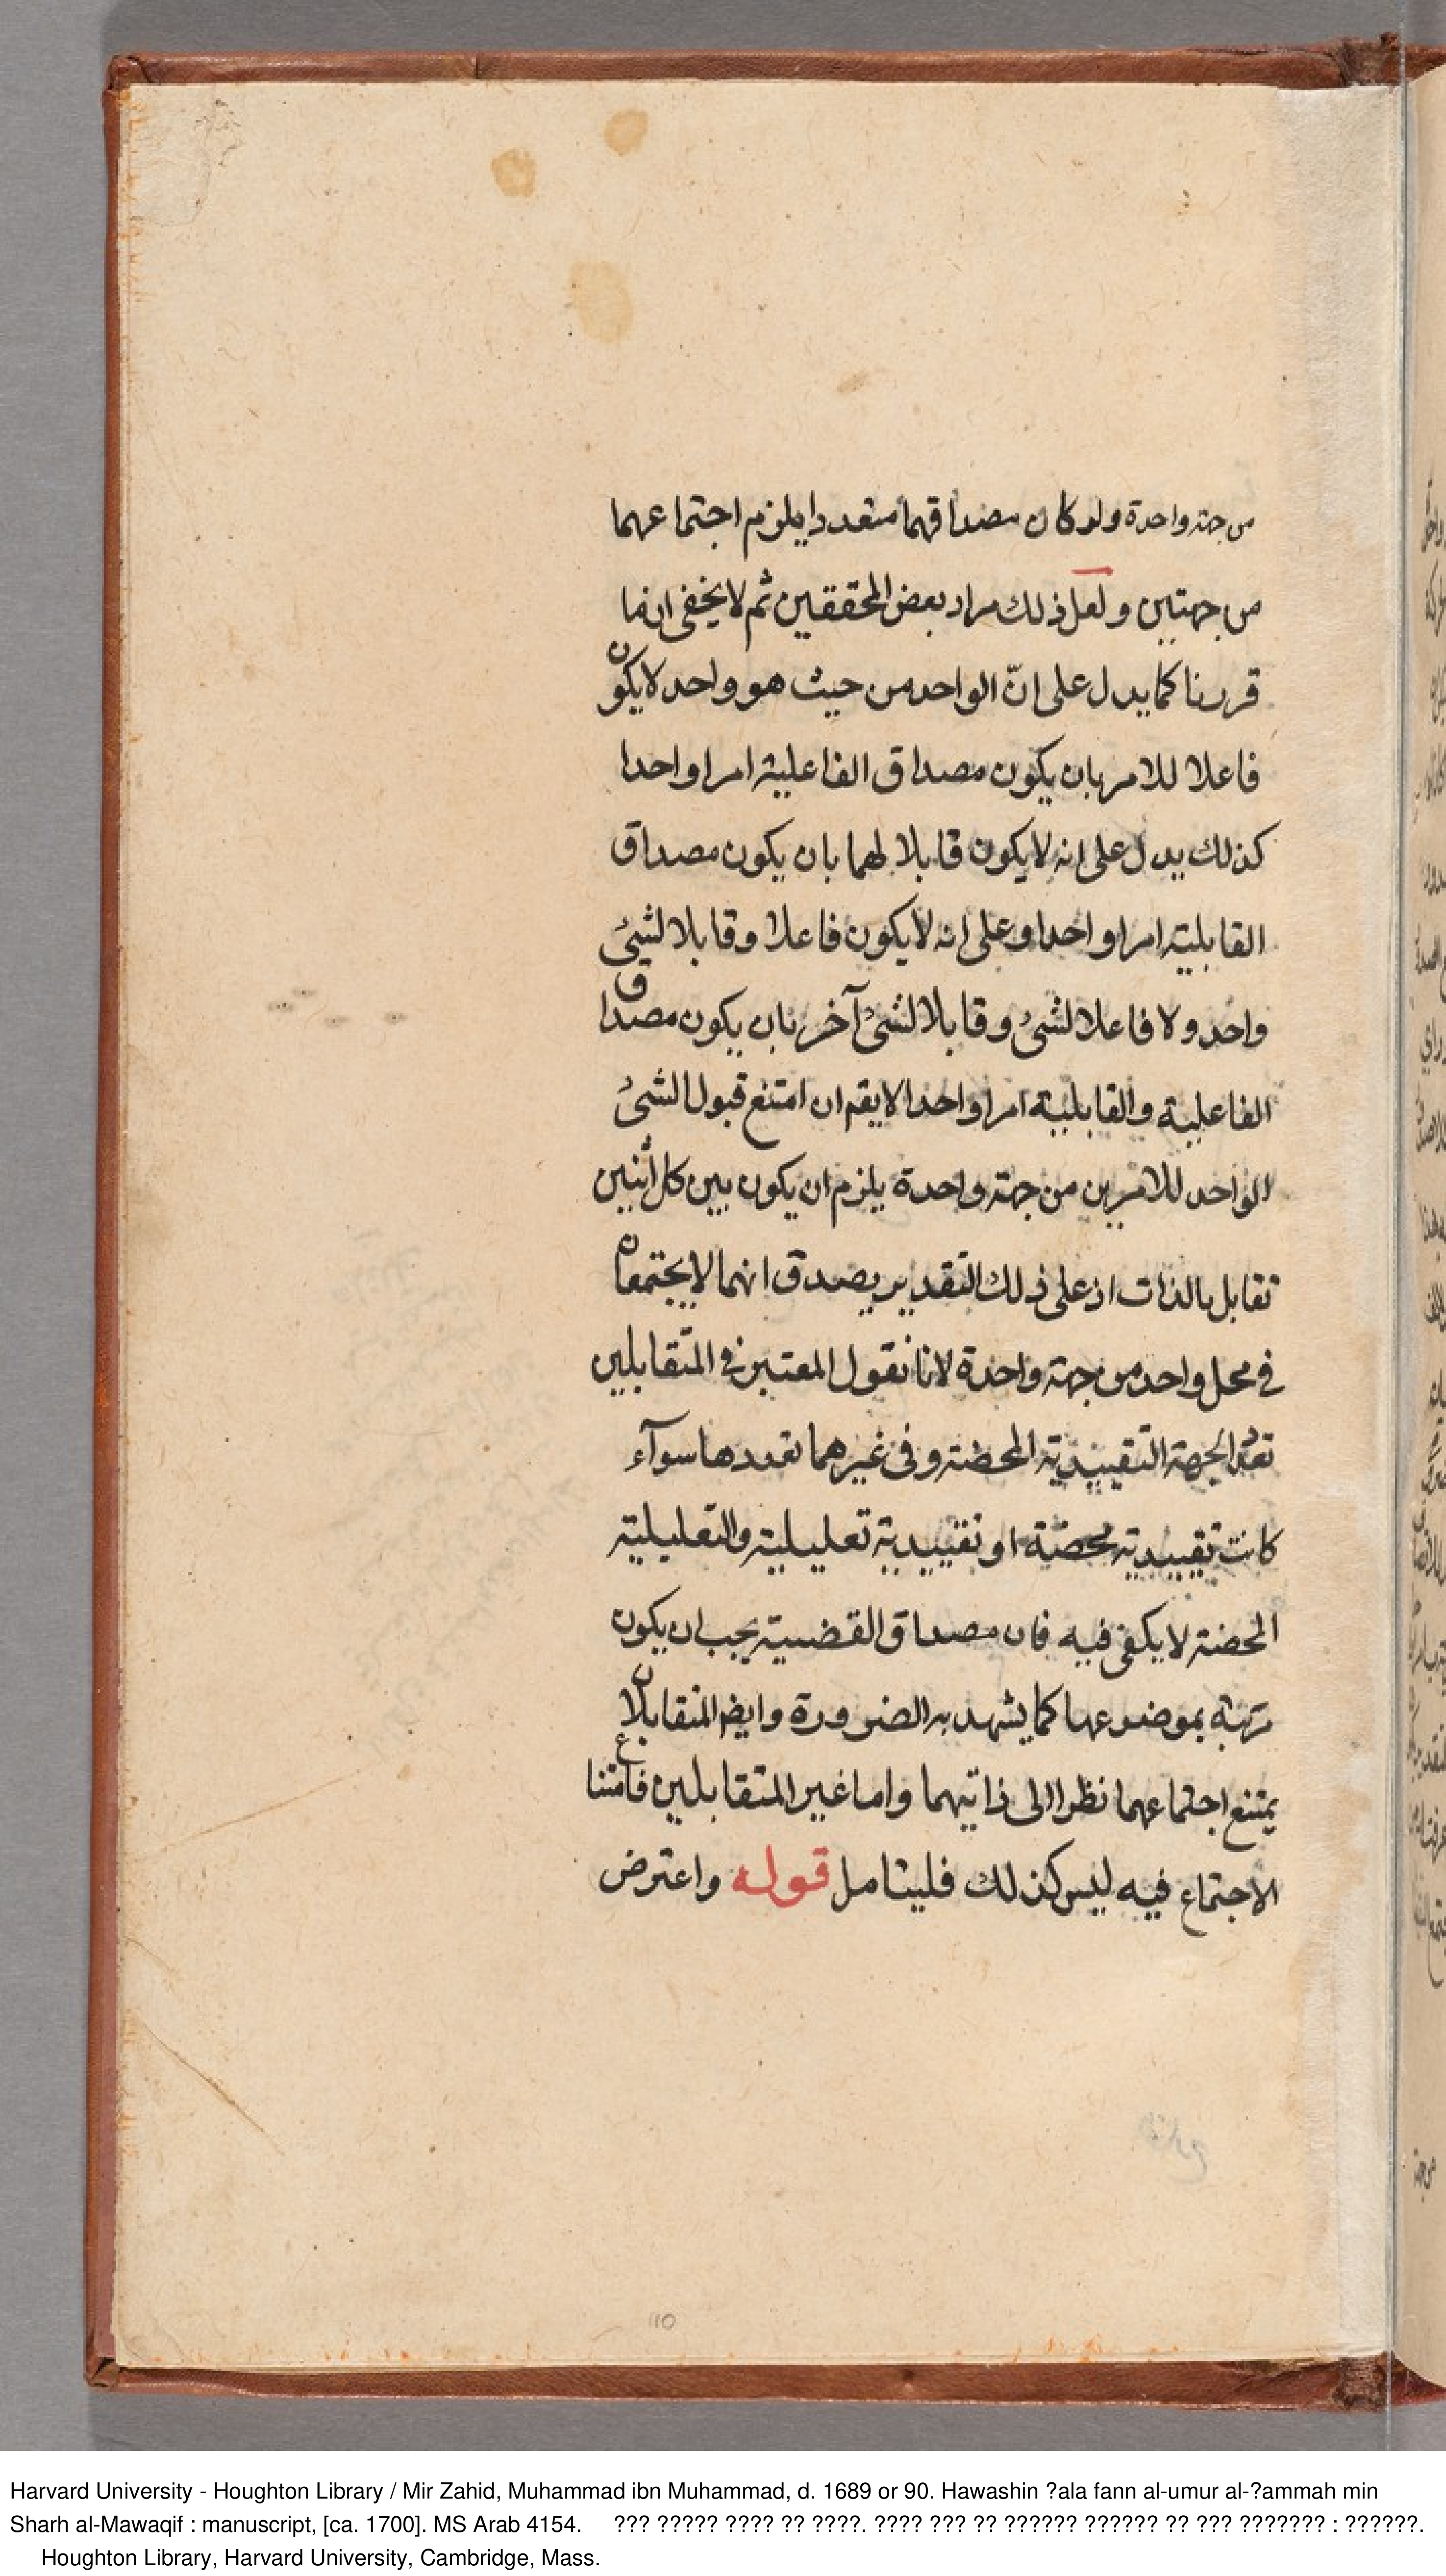 من جهة واحدة ولو كان مصداقهما متعددا يلزم اجتماعهما
من جهتين ولعل ذلك مراد بعض المحققين ثم لا يخفى ان ما
قررنا كما يدل على انّ الواحد من حيث هو واحد لا يكون
فاعلا للامر بان يكون مصداق الفاعلية امرا واحدا
كذلك يدل على انه لا يكون قابلا لهما بان يكون مصداق
القابلية امرا واحدا وعلى انه لا يكون فاعلا وقابلا لشئ
واحد ولا فاعلا لشئ وقابلا لشئ آخر بان يكون مصداق
الفاعلية والقابلية امرا واحدا لا يقم ان امتنع قبول الشئ
الواحد للامرين من جهة واحدة يلزم ان يكون بين كل اثنين
تقابل بالذات اذ على ذلك التقدير يصدق انهما لا يجتمعان
في محل واحد من جهة واحدة لانا نقول المعتبر في المتقابلين
تعدد الجهة التقييدية المحضة وفى غيرهما تعددها سوآء
كانت تقييدية محضة او تقييدية تعليلية والتعليلية
المحضة لا يكفى فيه فان مصداق القضية يجب ان يكون
مرتبة بموضوعها كما يشهد به الضرورة وايضا المتقابلان
يمتنع اجتماعهما نظرا الى ذاتيهما واما غير المتقابلين فامتناع
الاجتماع فيه ليس كذلك فليتامل قوله واعترض
110
Harvard University - Houghton Library / Mir Zahid, Muhammad ibn Muhammad, d. 1689 or 90. Hawashin ?ala fann al-umur al-?ammah min
Sharh al-Mawaqif : manuscript, [ca. 1700]. MS Arab 4154. ??? ????? ???? ?? ????. ???? ??? ?? ?????? ?????? ?? ??? ??????? : ??????.
Houghton Library, Harvard University, Cambridge, Mass.